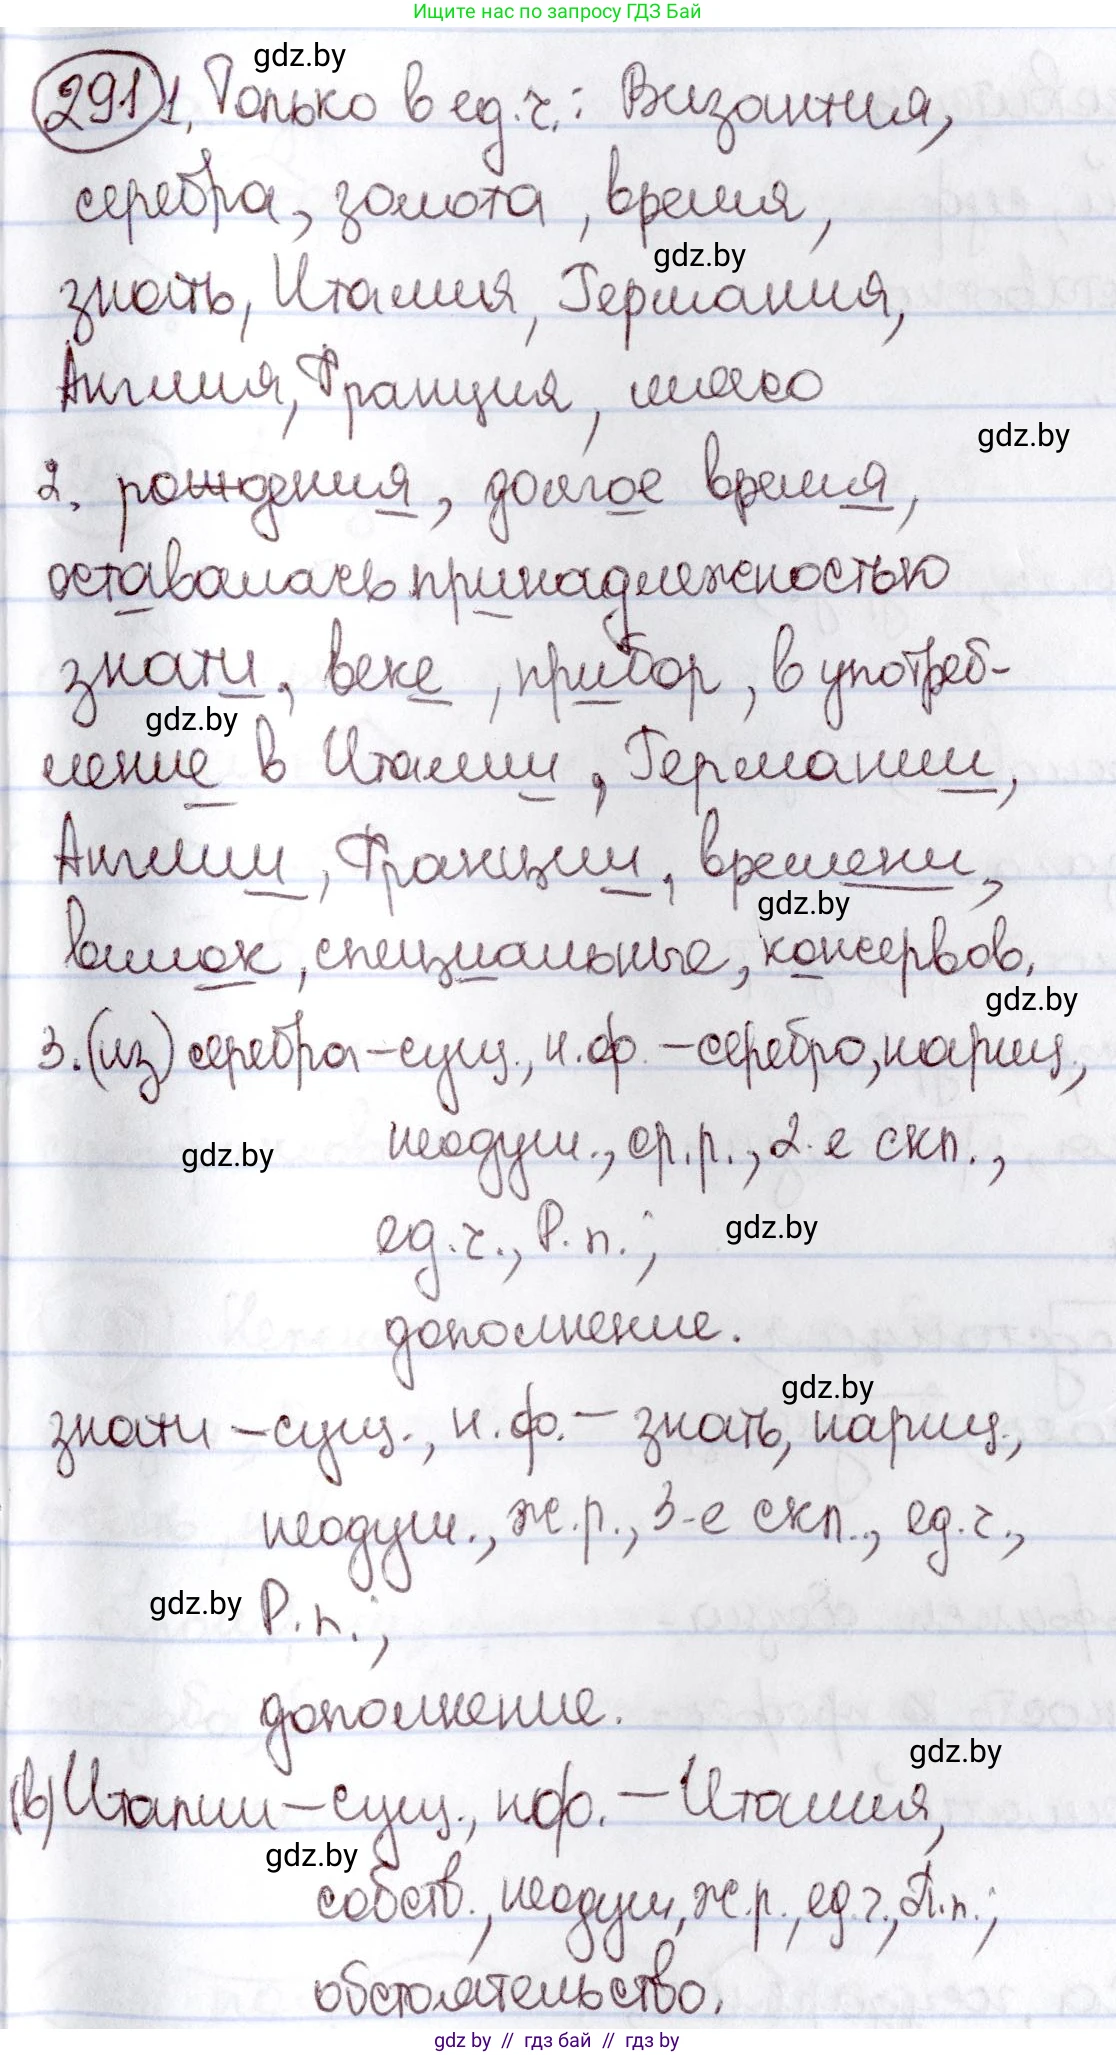 Ищите нас по запросу ГДЗ Бай
gdz.by
291 1. Только в ед.ч.: Византия,
серебра, золота, время,
gdz.by
знать, Италия, Германия,
Англия, Франция, мясо
gdz.by
2. рождения, долгое время,
оставалась принадлежностью
знати, веке, прибор, в употреб-
gdz.by
ление в Италии, Германии,
Англии, Франции, времени,
gdz.by
вилок, специальные, консервов.
gdz.by
3. (из) серебра – сущ., н.ф. – серебро, нариц.,
gdz.by
неодуш., ср.р., 2-е скл.,
ед.ч., Р.п.;
gdz.by
дополнение.
gdz.by
знати – сущ., н.ф. – знать, нариц.,
неодуш., ж.р., 3-е скл., ед.ч.,
gdz.by
Р.п.;
дополнение.
gdz.by
(в) Италии – сущ., н.ф. – Италия,
gdz.by
собств., неодуш., ж.р., ед.ч., П.п.;
обстоятельство.
gdz.by // гдз бай // гдз by